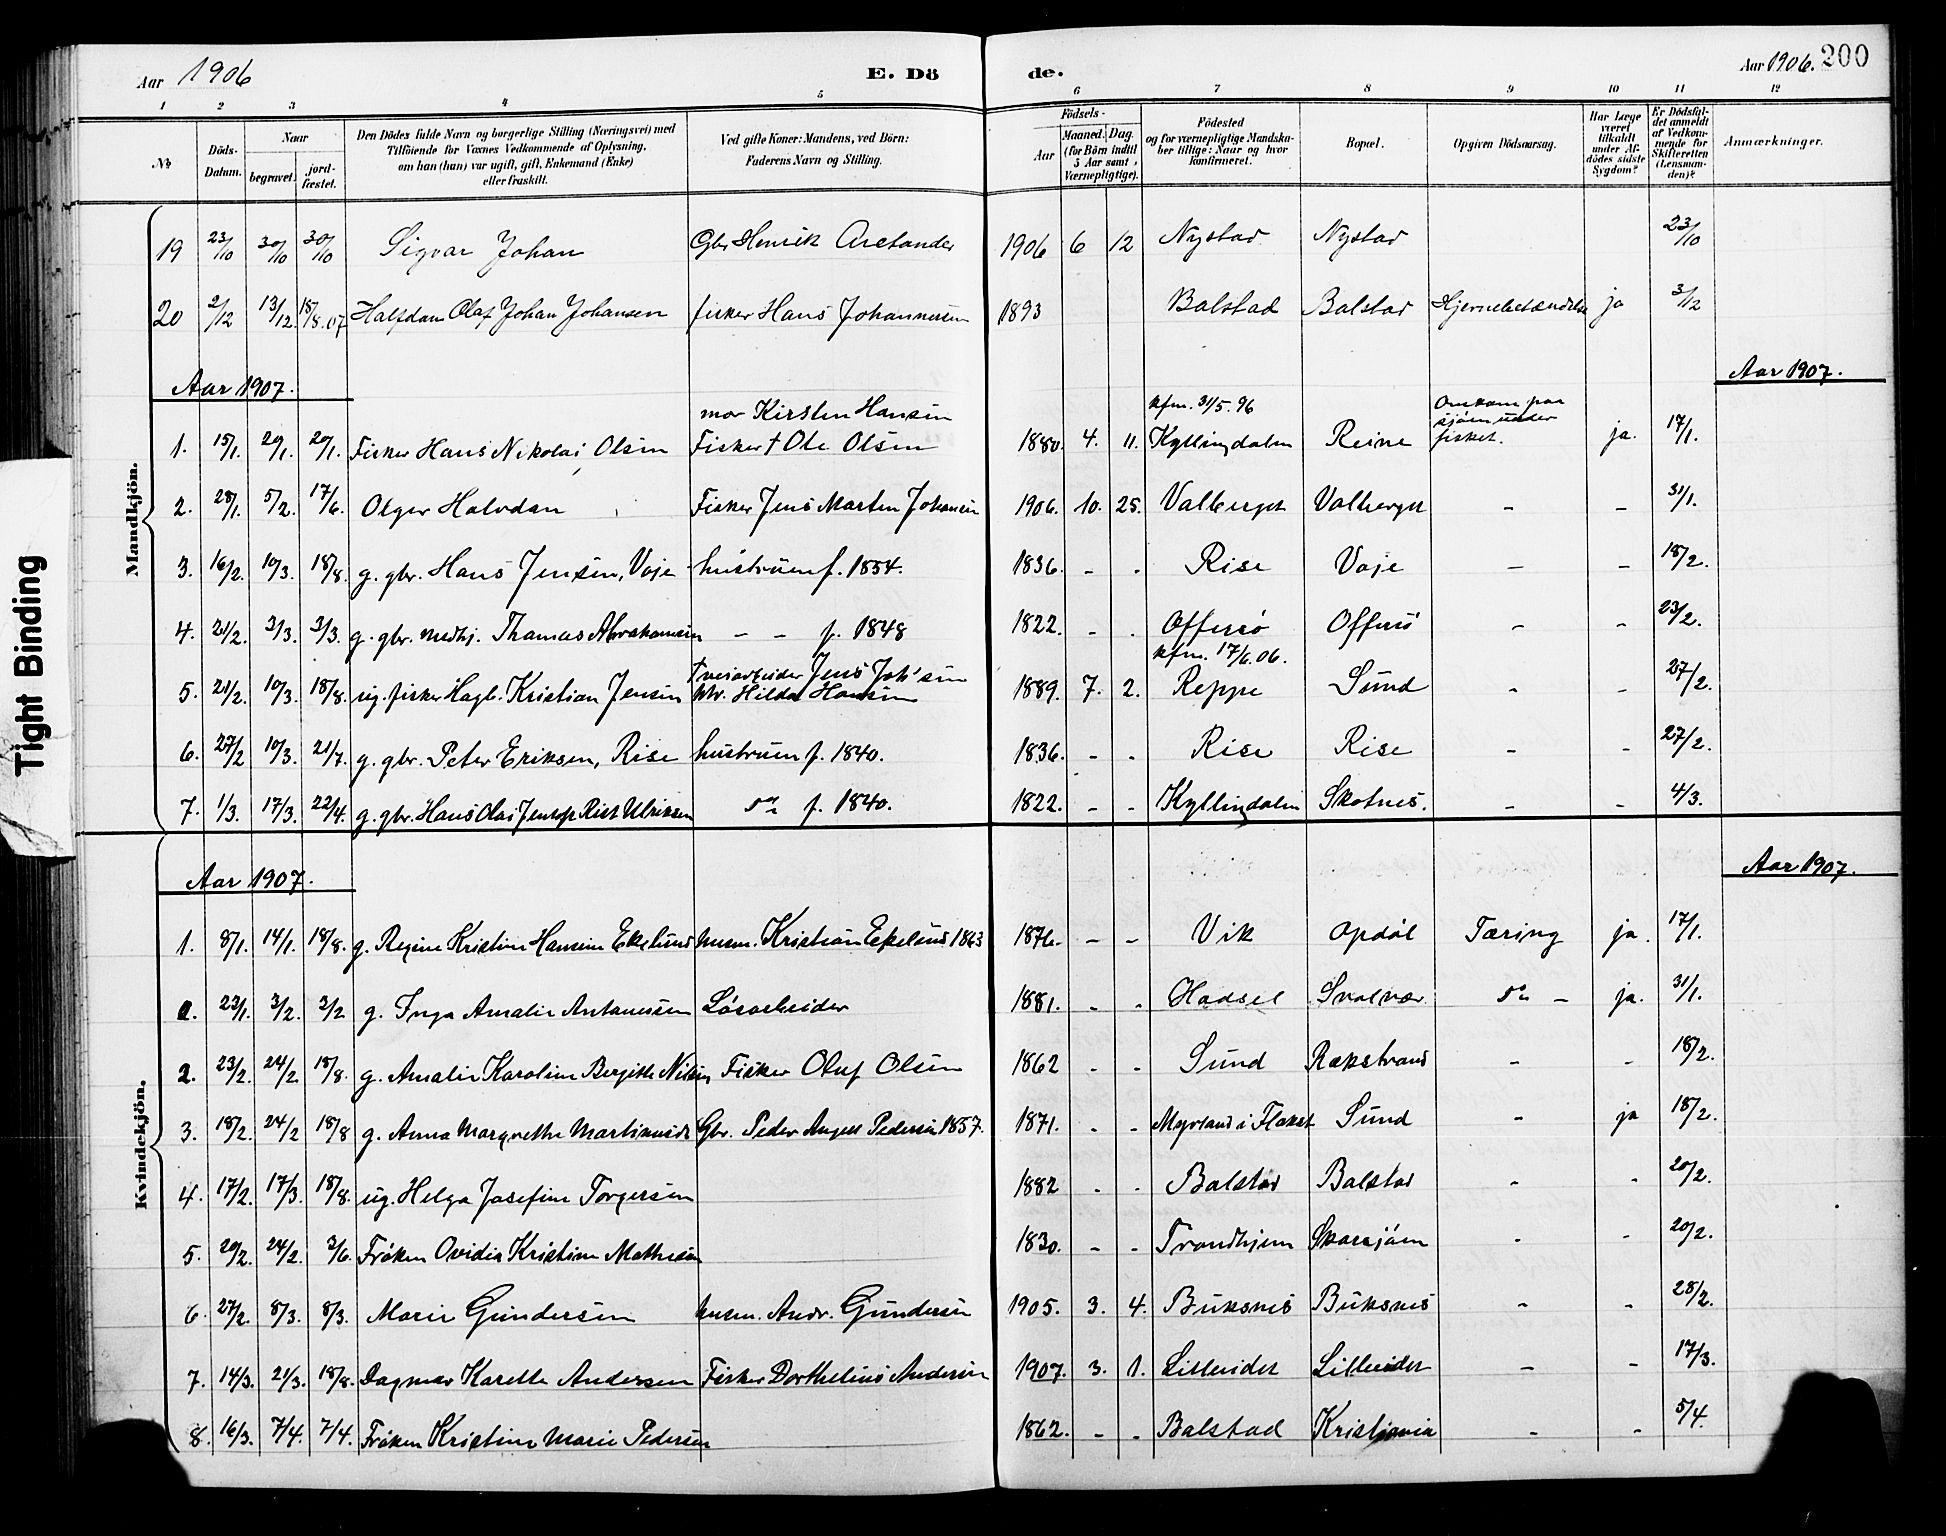 Aar 1906 E. Döde. Aar 1906. 200
1 2 3 4 5 6 7 8 9 10 11 12
No Döds-Datum. Naar begravet. jord-fæstet. Den Dödes fulde Navn og borgerlige Stilling (Næringsvei) med Tilföiende for Voxnes Vedkommende af Oplysning, om han (hun) var ugift, gift, Enkemand (Enke) eller fraskilt. Ved gifte Koner: Mandens, ved Börn: Faderens Navn og Stilling. Födsels- Aar Maaned. Dag. (for Börn indtil 5 Aar samt Værnepligtige). Födested og for værnepligtige Mandskaber tillige: Naar og hvor konfirmeret. Bopæl. Opgiven Dödsaarsag. Har Læge været tilkaldt under Afdödes sidste Sygdom? Er Dödsfaldet anmeldt af Vedkommende for Skifteretten (Lensmanden)? Anmærkninger.
Mandkjön.
19 23/10 30/10 30/10 Sigvar Johan Gbr Henrik Arctander 1906 6 12 Nystad Nystad 23/10
20 2/12 13/12. 18/8.07 Halfdan Olaf Johan Johansen fisker Hans Johannessen 1893 Balstad Balstad Hjernebetændelse ja 3/12
Aar 1907. Aar 1907.
mor Kirsten Hansen kfm. 31/5. 96 Omkom paa sjøen under
1. 15/1. 20/1. 20/1. Fisker Hans Nikolai Olsen Fisker † Ole Olsen 1880. 4. 11. Kyllingdalen Reine fisket. ja. 17/1.
2. 28/1. 5/2. 17/6. Olger Halvdan Fisker Jens Martin Johansen 1906. 10. 25. Valberget Valberget - - 31/1.
3. 16/2. 10/3. 18/8. g. gbr. Hans Jensen, Voje hustruen f. 1854. 1836. - - Rise Voje - - 18/2.
4. 21/2. 3/3. 3/3. g. gbr. medhj. Thomas Abrahamsen - - f. 1848 1822. - - Offersø Offersø - - 23/2.
† veiarbeider Jens Joh'sen kfm. 17/6. 06.
5. 21/2. 10/3. 18/8. ug. fisker Hagb. Kristian Jensen Hilda Hansen 1889. 7. 2. Reppe Sund - - 27/2.
6. 27/2 10/3. 21/7. g. gbr. Peter Eriksen, Rise hustruen f. 1840. 1836. - - Rise Rise - - 27/2.
7. 1/3. 17/3. 22/4. g. gbr. Hans Olai Ulriksen do f. 1840. 1822. - - Kyllindalen Skotnes. - - 4/3.
Kvindekjön.
Aar 1907. Aar 1907.
1. 8/1. 14/1. 18/8. g. Regine Kristine Hansine Ekelund husm. Kristian Ekelund 1863 1876. - - Vik Opdøl Tæring ja. 17/1.
23/1. 3/2. 3/2 g. Inga Amalie Antonessen Løsarbeider 1881. - - Hadsel Svolvær do - ja. 31/1.
2. 23/2. 24/2 18/8. g. Amalie Karoline Bergitte Nilsen Fisker Oluf Olsen 1862 - - Sund Rækstrand - - 18/2.
3. 18/2. 24/2 18/8 g. Anna Margrethe Martinusdt Gbr. Peder Angell Pedersen 1857. 1871. - - Myrland i Flakst Sund - ja 18/2.
4. 17/2. 17/3. 18/8. ug. Helga Josefine Torgersen 1882 - - Balstad Balstad - - 20/2.
5. 20/2. 24/2. 2/6. Frøken Ovidia Kristine Mathisen 1830. - - Trondhjem Skarsjøen - - 20/2.
6. 27/2. 8/3. 8/3. Marie Gundersen husm. Andr. Gundersen 1905. 3. 4. Buksnes Buksnes - - 28/2.
7. 14/3. 21/3. 18/8. Dagmar Karelle Andersen Fisker Dorthelius Andersen 1907. 3. 1. Lilleeidet Lilleeidet - - 17/3.
8. 16/3. 7/4. 7/4. Frøken Kristine Marie Pedersen 1862. - - Balstad Kristiania - - 5/4.
Tight Binding